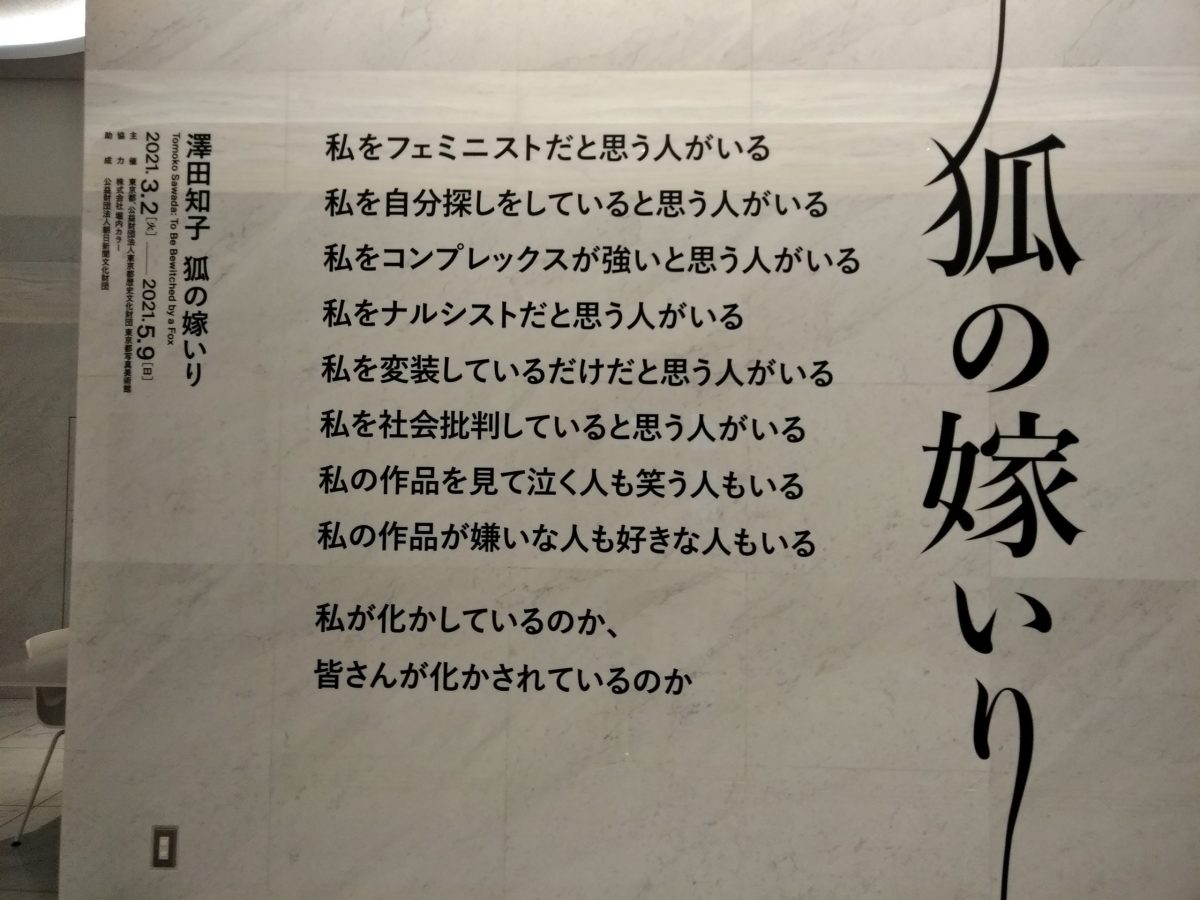 狐の嫁いり
私をフェミニストだと思う人がいる
私を自分探しをしていると思う人がいる
私をコンプレックスが強いと思う人がいる
私をナルシストだと思う人がいる
私を変装しているだけだと思う人がいる
私を社会批判していると思う人がいる
私の作品を見て泣く人も笑う人もいる
私の作品が嫌いな人も好きな人もいる
私が化かしているのか、
皆さんが化かされているのか
澤田知子 狐の嫁いり
Tomoko Sawada: To Be Bewitched by a Fox
2021.3.2[火]——2021.5.9[日]
主催 東京都、公益財団法人東京都歴史文化財団 東京都写真美術館
協力 株式会社 堀内カラー
助成 公益財団法人朝日新聞文化財団